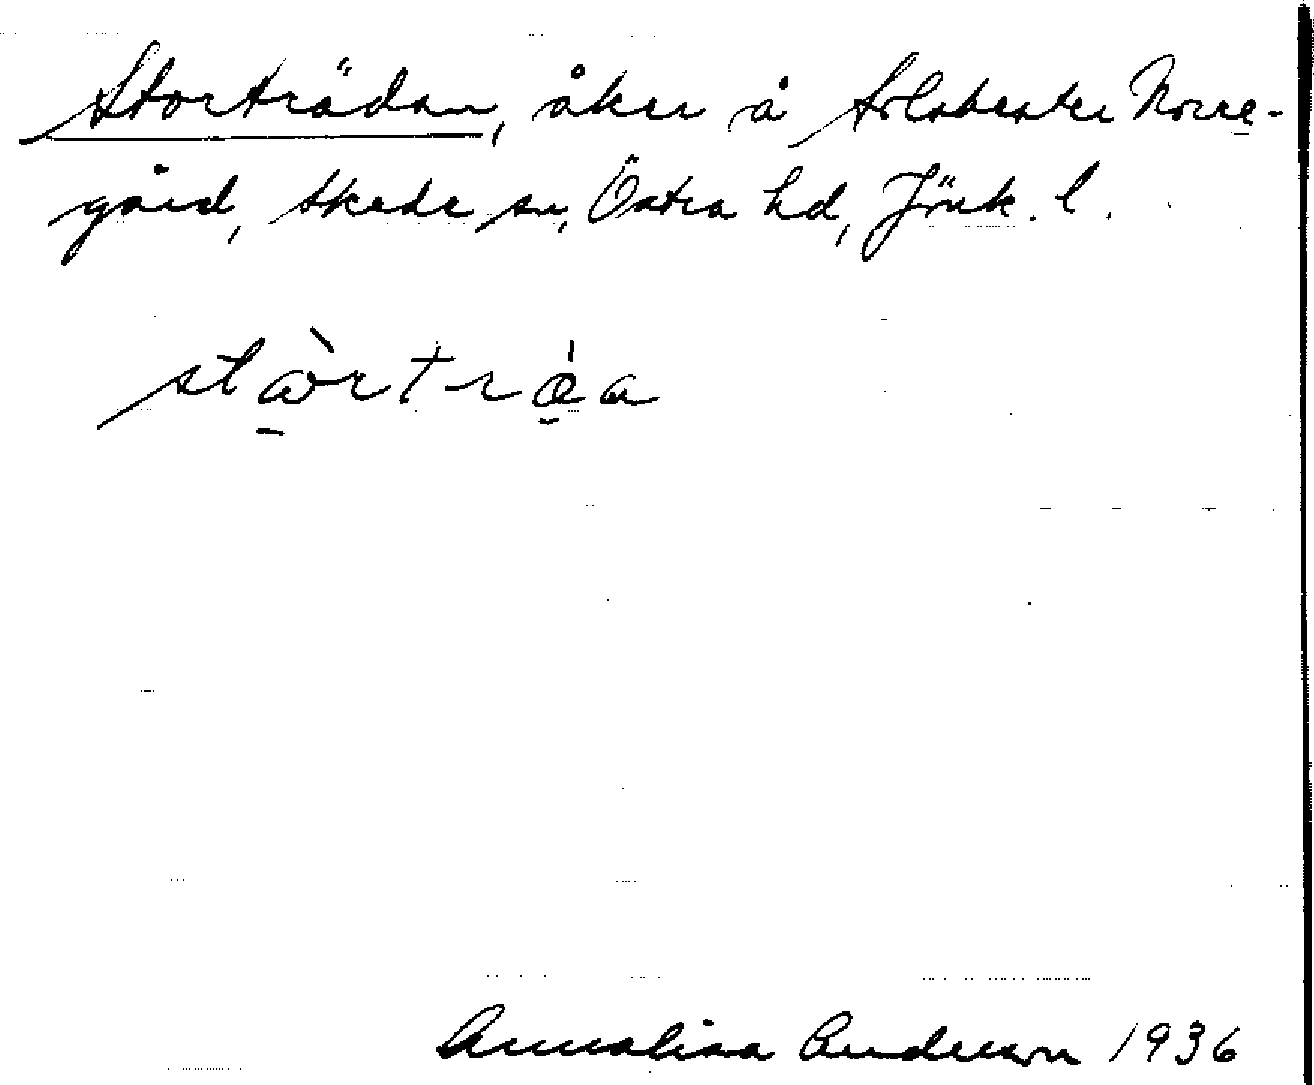 Storträdan, åker å Solabester Norre-
gård, Skede sn, Östra hd, Jönk. l.
Annalisa Anderson 1936